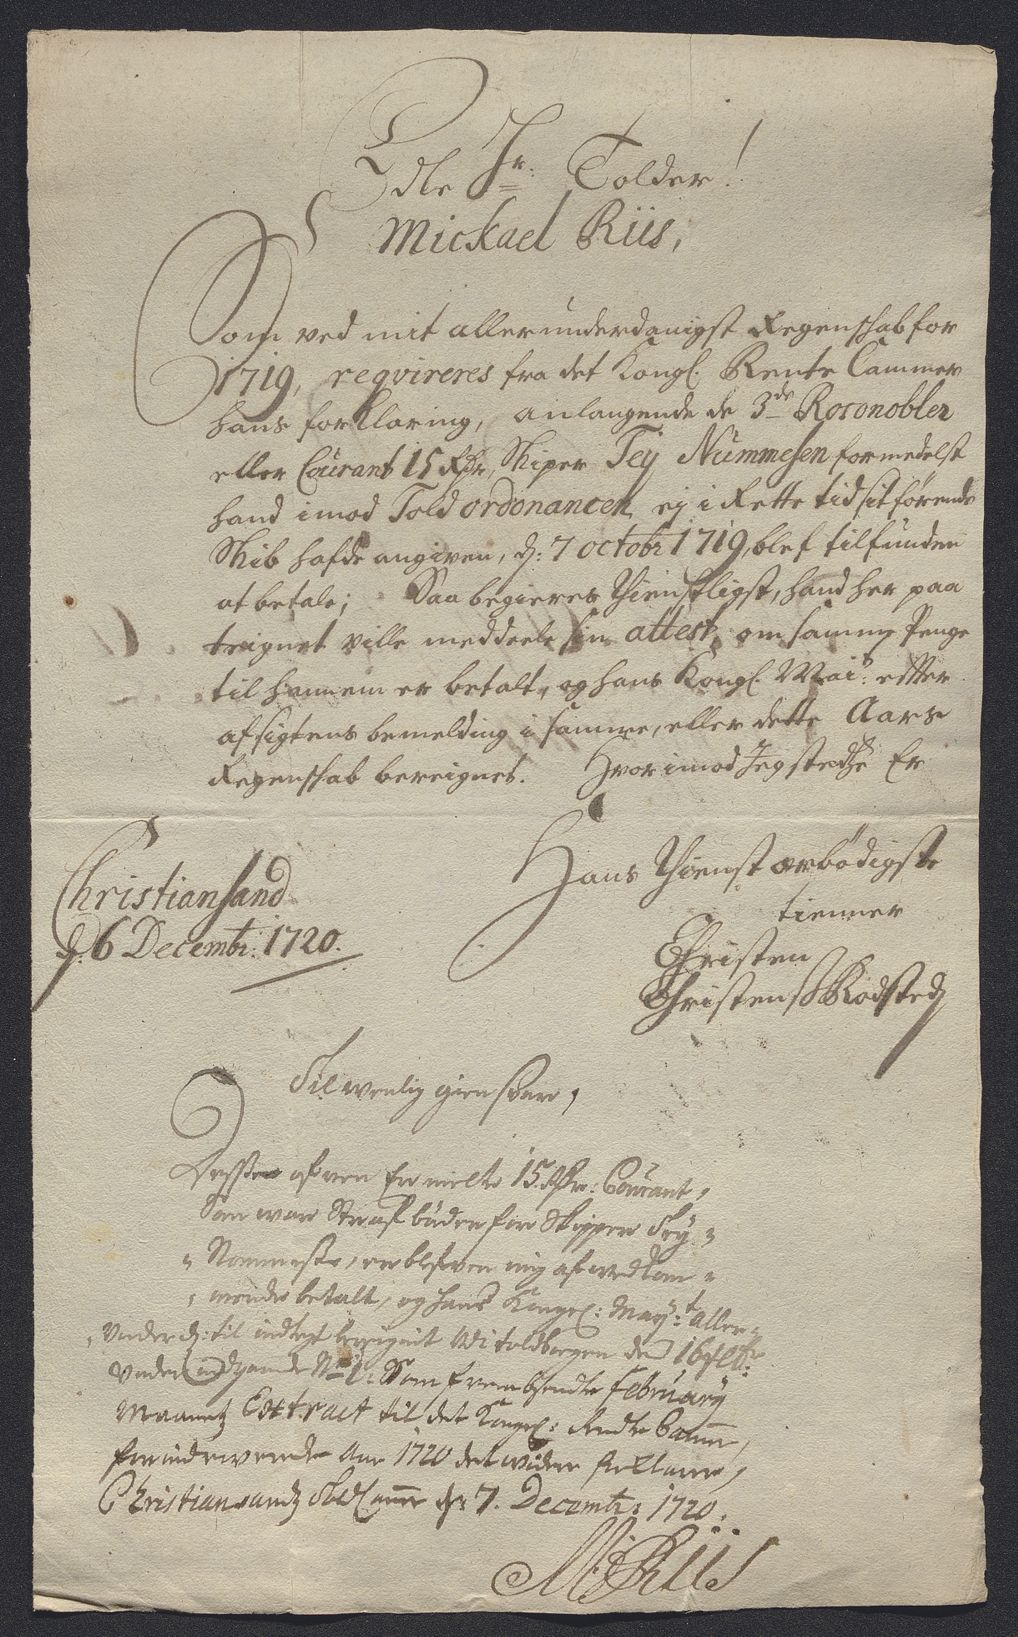 Edle Hr. Tolder!
Mickael Riis,
Som ved mit allerunderdanigst Regenschab for
1719, reqvireres fra det Kongl. Rente Cammer
hans forklaring, anlangende de 3de Rosonobler
eller Courant 15 Rdr, Skiper Tey Nummesen formedelst
hand imod Told ordonancen, ej i Rette tid sit førende
Skib hafde angiven, d: 7 octobr 1719, blef tilfunden
at betale; Saa begieres thienstligst, hand her paa
teignet ville meddeele sin attest, om samme Penge
til hannem er betalt, og hans Kongl. Mai: efter
afsigtens bemelding i samme, eller dette Aars
Regenschab bereignet. Hvorimod Jeg stedse Er
Hans thienst ærbødigste
tienner
Christiansand
d: 6 Decembr: 1720.
Christen
Christens Rodsted
Til venlig giensvar,
Disse af ven Er melte 15 Rdr: Courant,
Som var Straf bøder for Skipper Tey
Nommesen, er blefven mig af vedkom-
mende betalt, og hans Kongel: Mayt: aller-
under d: til indtegt bereignit Ved toldbogen den 16
under No 1: Som frembsendte February
Maanetz Extract til det Kongel: Rendte Camer,
for inde werende Aar 1720 det widere forklarer,
Christiansandz d: 7. Decembr: 1720.
M: Riis